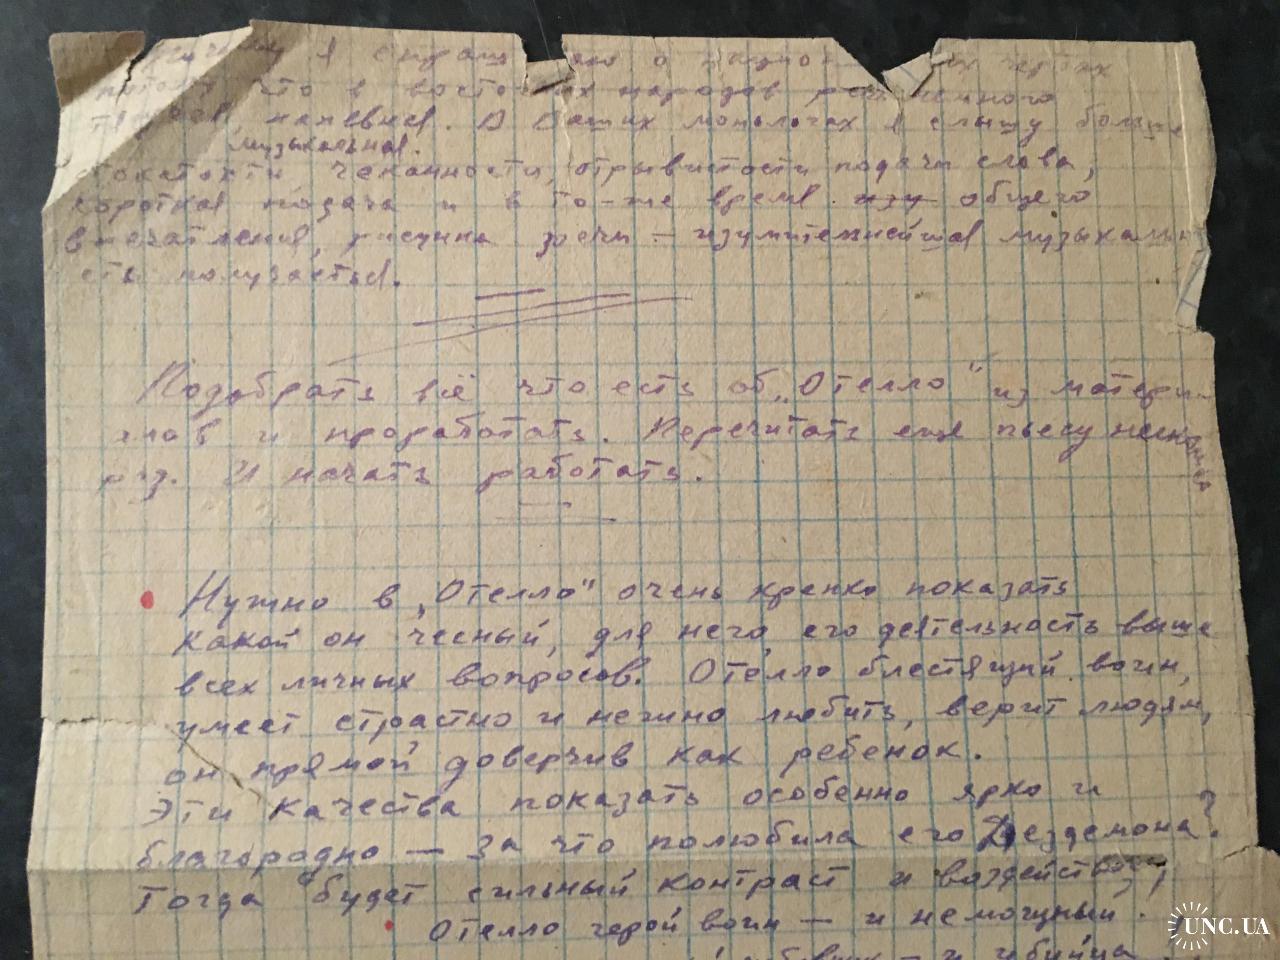 я спраш о национ х чертах
потому что в восточных народов речь немного
певевная. В Ваших монологах я слышу больше
музыкальная.
стокатости, чеканности, отрывистости подачи слова,
короткая подача и в то-же время изу общего
впечатления, рисунка речи — изумительнейшая музыкально
сть получается.
Подобрать всё что есть об „Отелло" из матери-
алов и проработать. Перечитать еще пьесу несколько
раз. И начать работать.
Нужно в „Отелло" очень крепко показать
какой он чесный, для него, его деятельность выше
всех личных вопросов. Отелло блестящий воин,
умеет страстно и нежно любить, верит людям,
он прямой доверчив как ребенок.
Эти качества показать особенно ярко и
благородно — за что полюбила его Дездемона?
Тогда будет сильный контраст и воздействие,
Отелло герой воин — и немощный.
— и убийца
UNC.UA